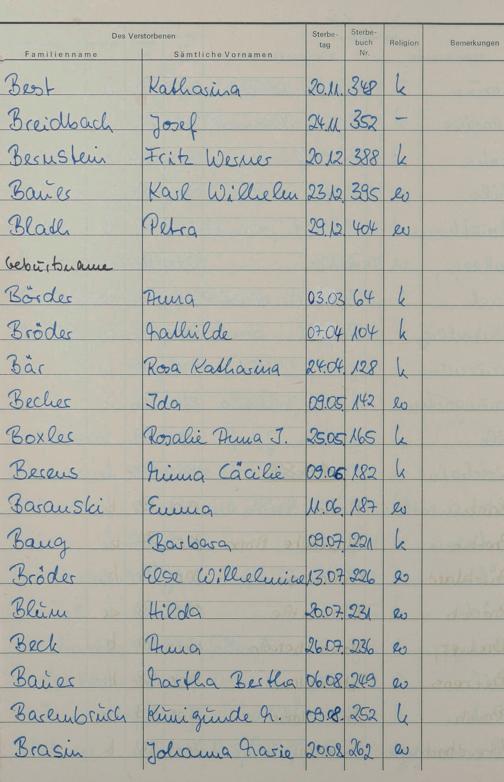 Des Verstorbenen Sterbe- Sterbe-
tag buch Religion Bemerkungen
Familienname Sämtliche Vornamen Nr.
Best Katharina 20.11. 348 k
Breidbach Josef 24.11 352 –
Bernstein Fritz Werner 20.12 388 k
Bauer Karl Wilhelm 23.12 395 ev
Blath Petra 29.12 404 ev
Geburtsname
Börder Anna 03.03 64 k
Bröder Mathilde 07.04 104 k
Bär Rosa Katharina 24.04. 128 k
Becher Ida 09.05 142 ev
Boxler Rosalie Anna J. 25.05 165 k
Berens Minna Cäcilie 09.06 182 k
Baranski Emma 11.06. 187 ev
Bang Barbara 09.07 221 k
Bröder Else Wilhelmine 13.07 226 ev
Blüm Hilda 20.07. 231 ev
Beck Anna 26.07. 236 ev
Bauer Martha Bertha 06.08. 249 ev
Barenbruch Kunigunde M. 09.08. 252 k
Brasin Johanna Marie 20.08 262 ev